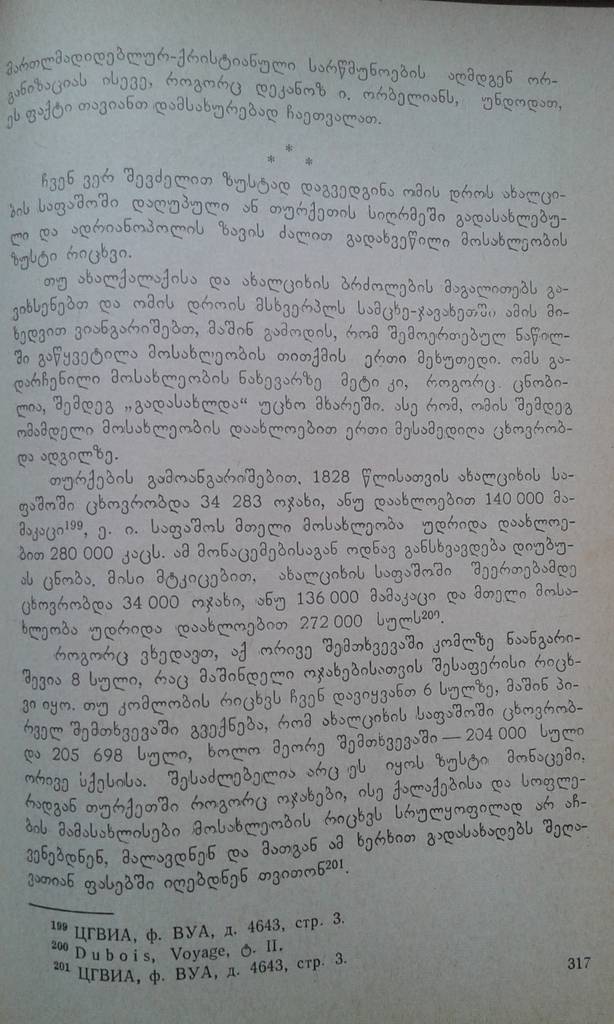 მართლმადიდებლურ-ქრისტიანული სარწმუნოების აღმდგენ ორ-
განიზაციას ისევე, როგორც დეკანოზ ი. ორბელიანს, უნდოდათ,
ეს ფაქტი თავიანთ დამსახურებად ჩაეთვალათ.
*
* *
ჩვენ ვერ შევძელით ზუსტად დაგვედგინა ომის დროს ახალცი-
ხის საფაშოში დაღუპული ან თურქეთის სიღრმეში გადასახლებუ-
ლი და ადრიანოპოლის ზავის ძალით გადახვეწილი მოსახლეობის
ზუსტი რიცხვი.
თუ ახალქალაქისა და ახალციხის ბრძოლების მაგალითებს გა-
ვიხსენებთ და ომის დროის მსხვერპლს სამცხე-ჯავახეთში ამის მი-
ხედვით ვიანგარიშებთ, მაშინ გამოდის, რომ შემოერთებულ ნაწილ-
ში გაწყვეტილა მოსახლეობის თითქმის ერთი მეხუთედი. ომს გა-
დარჩენილი მოსახლეობის ნახევარზე მეტი კი, როგორც ცნობი-
ლია, შემდეგ „გადასახლდა“ უცხო მხარეში. ასე რომ, ომის შემდეგ
ომამდელი მოსახლეობის დაახლოებით ერთი მესამედიღა ცხოვრობ-
და ადგილზე.
თურქების გამოანგარიშებით, 1828 წლისათვის ახალციხის სა-
ფაშოში ცხოვრობდა 34 283 ოჯახი, ანუ დაახლოებით 140 000 მა-
მაკაცი¹⁹⁹, ე. ი. საფაშოს მთელი მოსახლეობა უდრიდა დაახლოე-
ბით 280 000 კაცს. ამ მონაცემებისაგან ოდნავ განსხვავდება დიუბუ-
ას ცნობა. მისი მტკიცებით, ახალციხის საფაშოში შეერთებამდე
ცხოვრობდა 34 000 ოჯახი, ანუ 136 000 მამაკაცი და მთელი მოსა-
ხლეობა უდრიდა დაახლოებით 272 000 სულს²⁰⁰.
როგორც ვხედავთ, აქ ორივე შემთხვევაში კომლზე ნაანგარი-
შევია 8 სული, რაც მაშინდელი ოჯახებისათვის შესაფერისი რიცხ-
ვი იყო. თუ კომლობის რიცხვს ჩვენ დავიყვანთ 6 სულზე, მაშინ პი-
რველ შემთხვევაში გვექნება, რომ ახალციხის საფაშოში ცხოვრობ-
და 205 698 სული, ხოლო მეორე შემთხვევაში — 204 000 სული
ორივე სქესისა. შესაძლებელია არც ეს იყოს ზუსტი მონაცემი,
რადგან თურქეთში როგორც ოჯახები, ისე ქალაქებისა და სოფლე-
ბის მამასახლისები მოსახლეობის რიცხვს სრულყოფილად არ აჩ-
ვენებდნენ, მალავდნენ და მათგან ამ ხერხით გადასახადებს შეღა-
ვათიან ფასებში იღებდნენ თვითონ²⁰¹.
¹⁹⁹ ЦГВИА, ф. ВУА, д. 4643, стр. 3.
²⁰⁰ Dubois, Voyage, ტ. II.
²⁰¹ ЦГВИА, ф. ВУА, д. 4643, стр. 3.
317